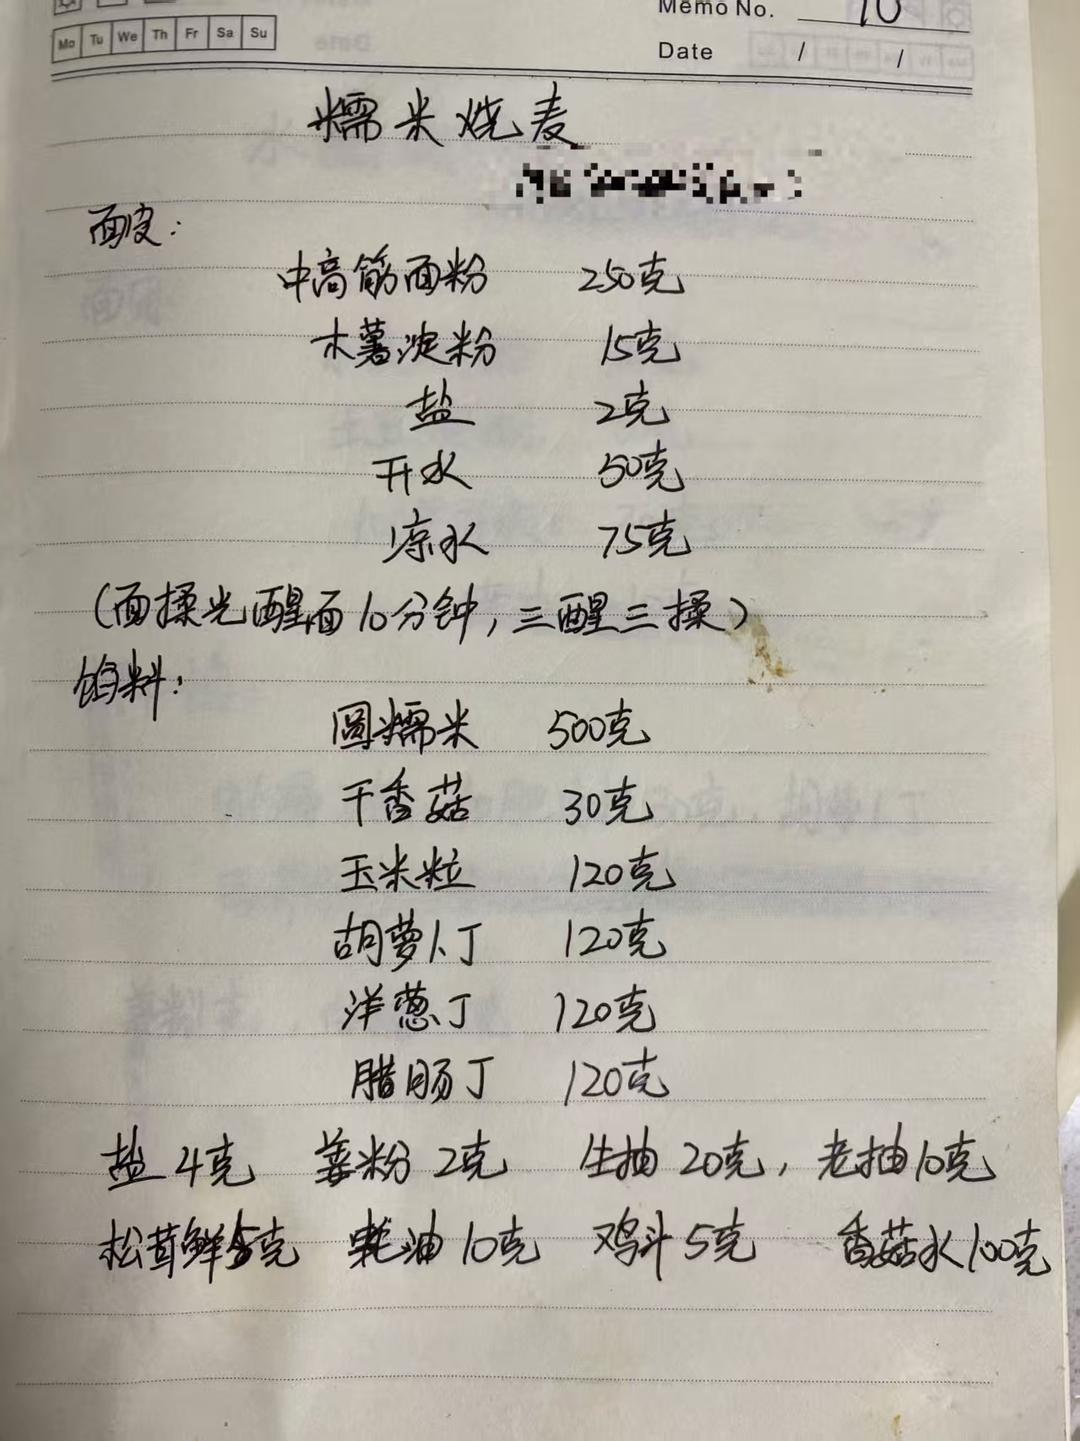 Memo No. 10
Mo Tu We Th Fr Sa Su
Date / /
糯米烧麦
面皮:
中高筋面粉 250克
木薯淀粉 15克
盐 2克
开水 50克
凉水 75克
(面揉光醒面10分钟,三醒三揉)
馅料:
圆糯米 500克
干香菇 30克
玉米粒 120克
胡萝卜丁 120克
洋葱丁 120克
腊肠丁 120克
盐4克 姜粉2克 生抽20克,老抽10克
松茸鲜5克 蚝油10克 鸡汁5克 香菇水100克